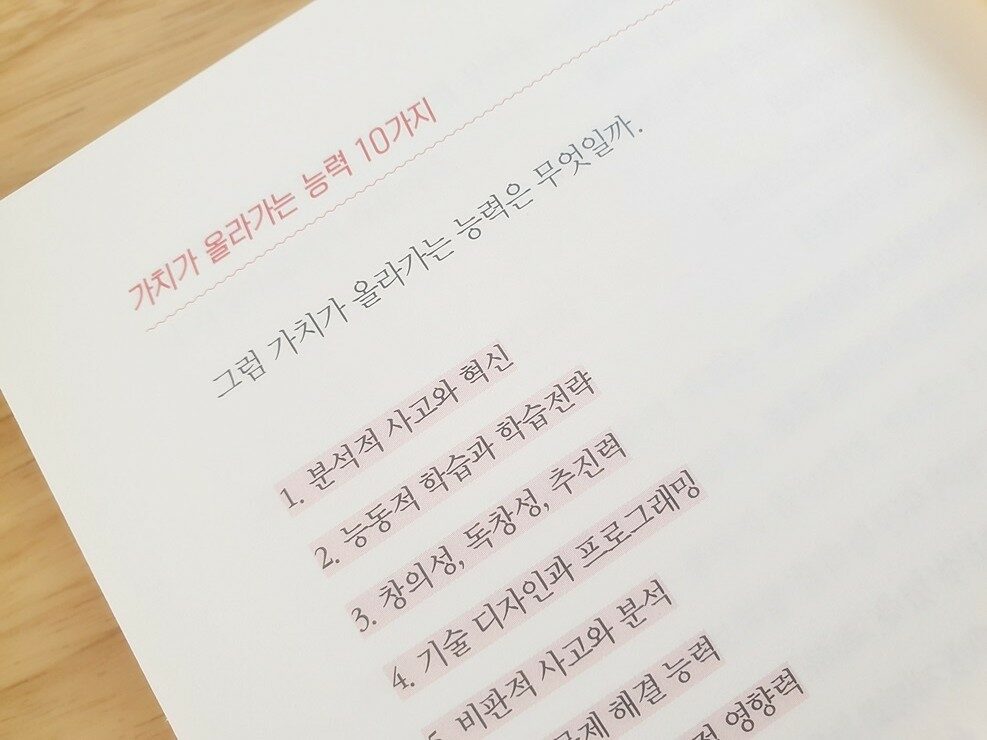 가치가 올라가는 능력 10가지
그럼 가치가 올라가는 능력은 무엇일까.
1. 분석적 사고와 혁신
2. 능동적 학습과 학습전략
3. 창의성, 독창성, 추진력
4. 기술 디자인과 프로그래밍
5. 비판적 사고와 분석
문제 해결 능력
영향력